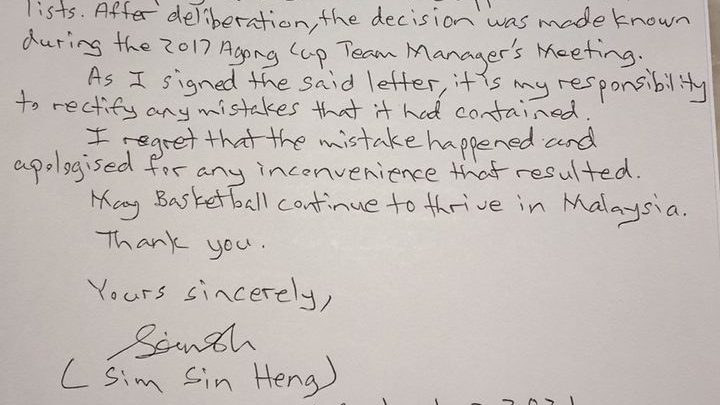 lists. After deliberation, the decision was made known
during the 2017 Agong Cup Team Manager's Meeting.
As I signed the said letter, it is my responsibility
to rectify any mistakes that it had contained.
I regret that the mistake happened and
apologised for any inconvenience that resulted.
May Basketball continue to thrive in Malaysia.
Thank you.
Yours sincerely,
(Sim Sin Heng)